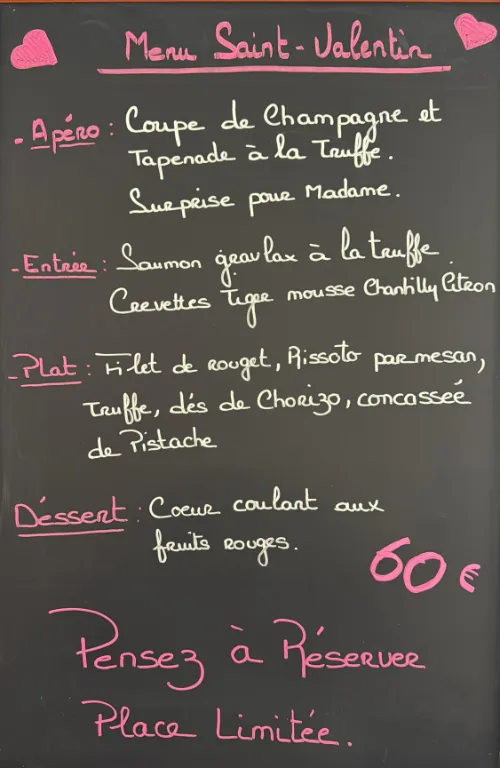 Menu Saint-Valentin
- Apéro : Coupe de Champagne et
Tapenade à la Truffe.
Surprise pour Madame.
- Entrée : Saumon gravlax à la truffe.
Crevettes Tiger mousse Chantilly Citron
- Plat : Filet de rouget, Rissoto parmesan,
Truffe, dés de Chorizo, concassée
de Pistache
Déssert : Coeur coulant aux
fruits rouges.
60 €
Pensez à Réserver
Place Limitée.